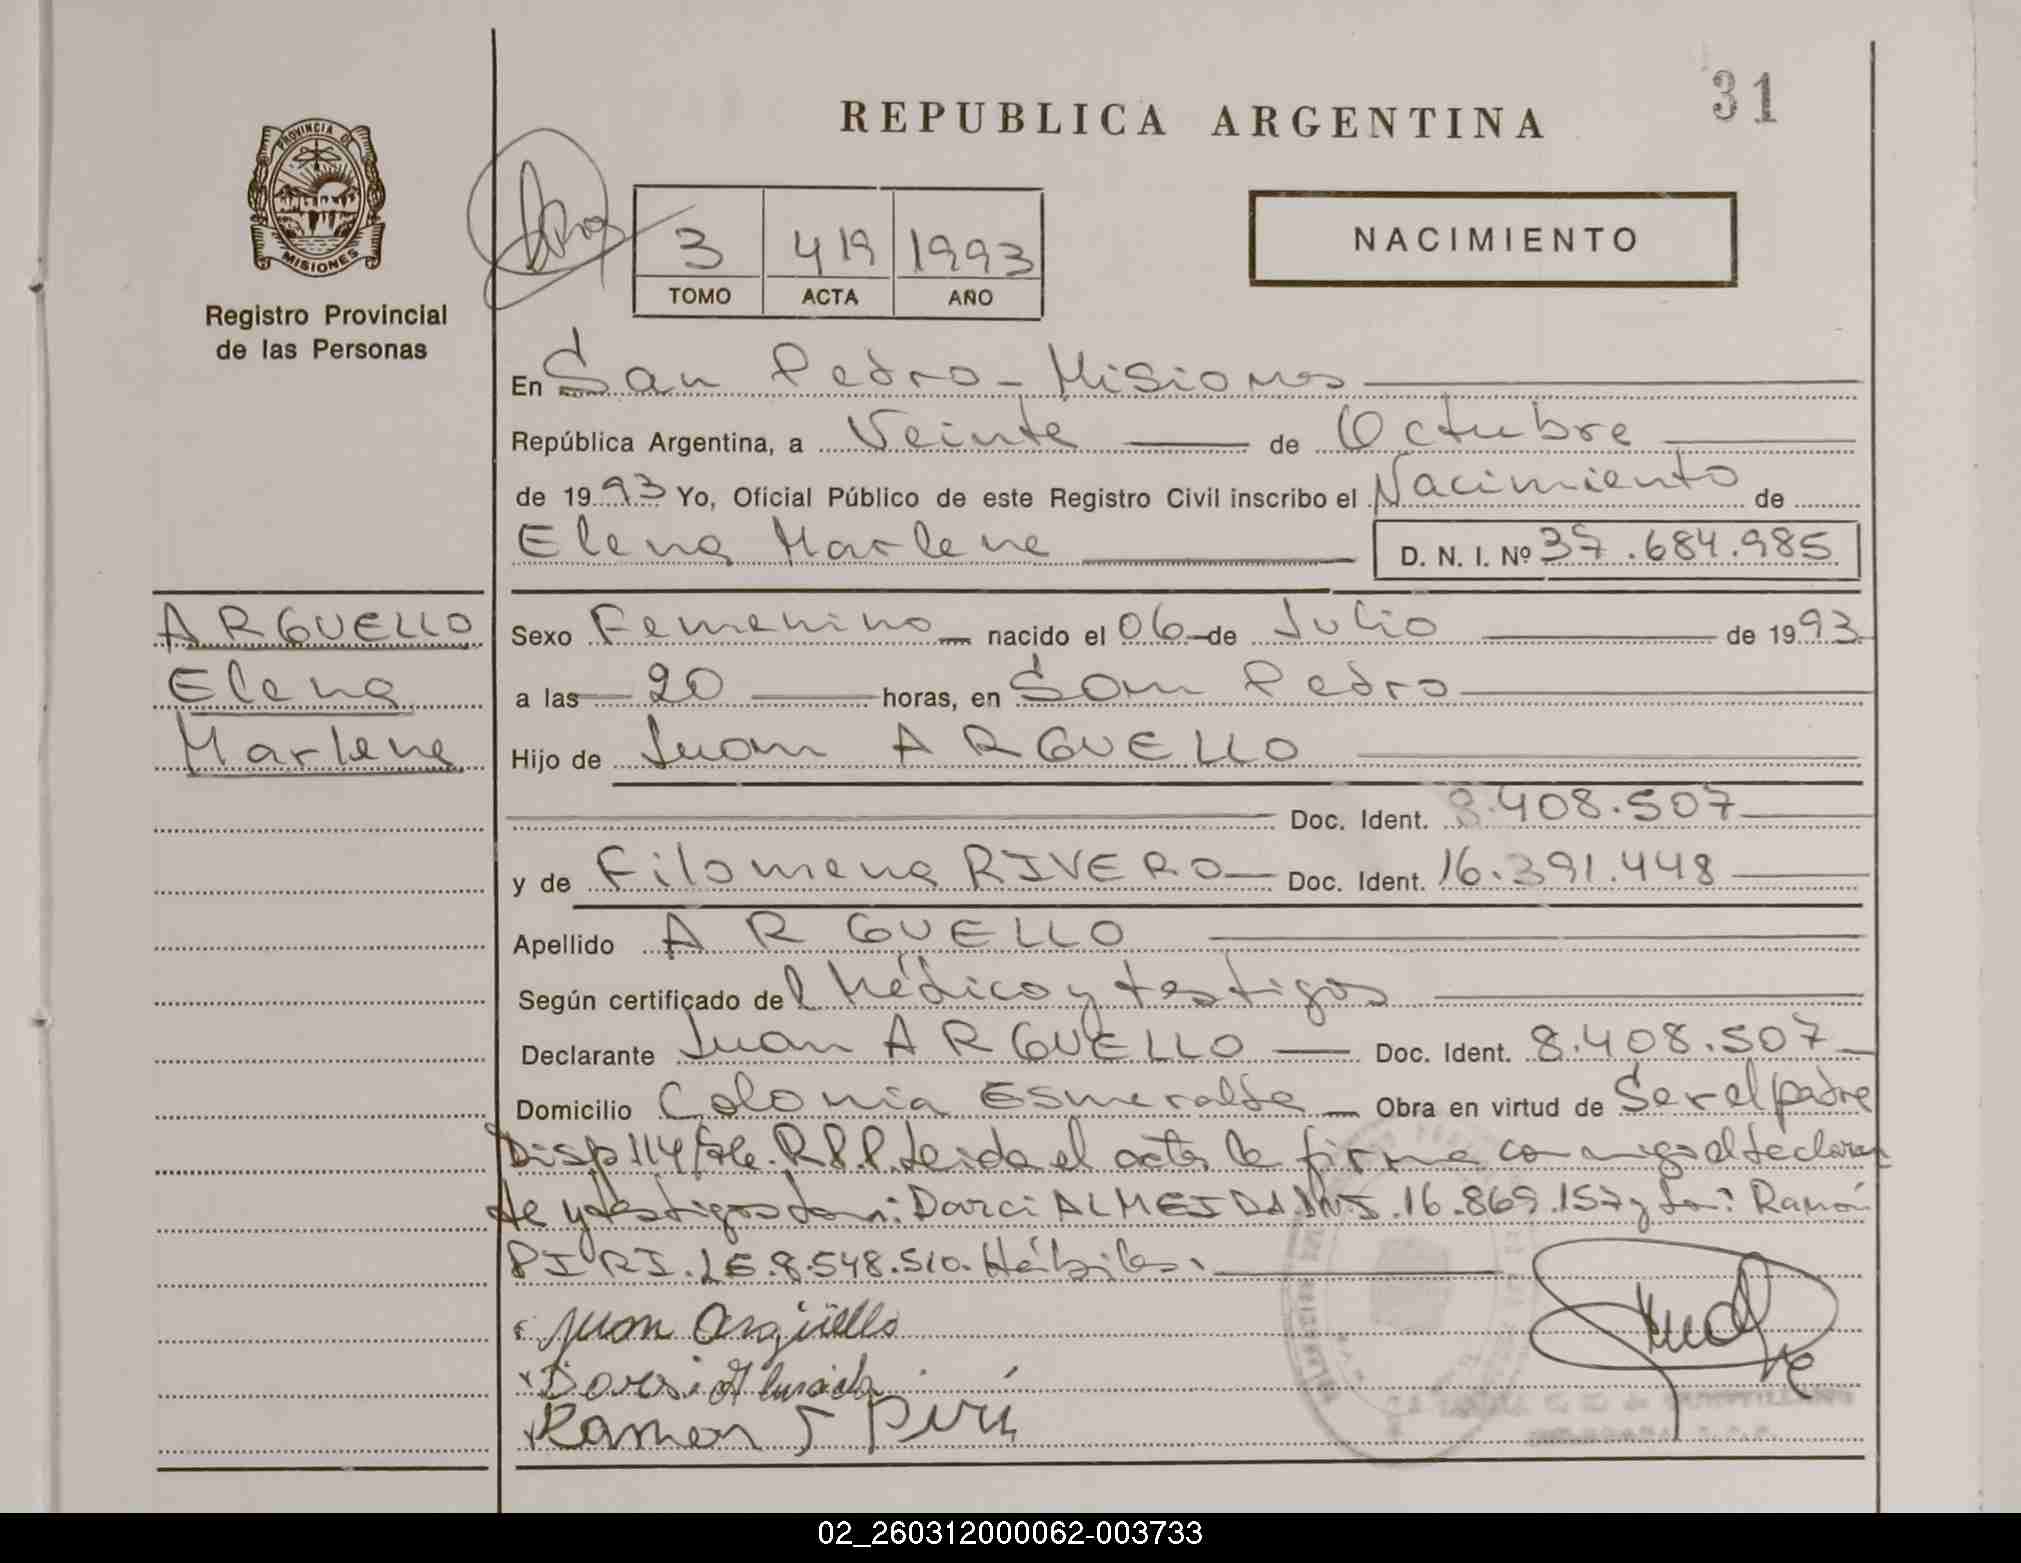 31
REPUBLICA ARGENTINA
PROVINCIA DE
MISIONES
Registro Provincial
de las Personas
3 419 1993
TOMO ACTA AÑO
NACIMIENTO
En San Pedro - Misiones
República Argentina, a Veinte de Octubre
de 1993 Yo, Oficial Público de este Registro Civil inscribo el Nacimiento de
Elena Marlene D. N. I. Nº 37.684.985
ARGUELLO
Elena
Marlene
Sexo Femenino nacido el 06 de Julio de 1993
a las 20 horas, en San Pedro
Hijo de Juan ARGUELLO
Doc. Ident. 8.408.507
y de Filomena RIVERO Doc. Ident. 16.391.448
Apellido ARGUELLO
Según certificado del Médico y testigos
Declarante Juan ARGUELLO Doc. Ident. 8.408.507
Domicilio Colonia Esmeralda Obra en virtud de Ser el padre
Disp 114/ R.P.P. Leida el acta la firma conmigo el declaran
te y testigos Darci ALMEIDA DNI. 16.869.157 y Ramón
PIRI. LE. 8.548.510. Hábiles.
Juan Argüello
Darci Almeida
Ramon Piri
02_260312000062-003733